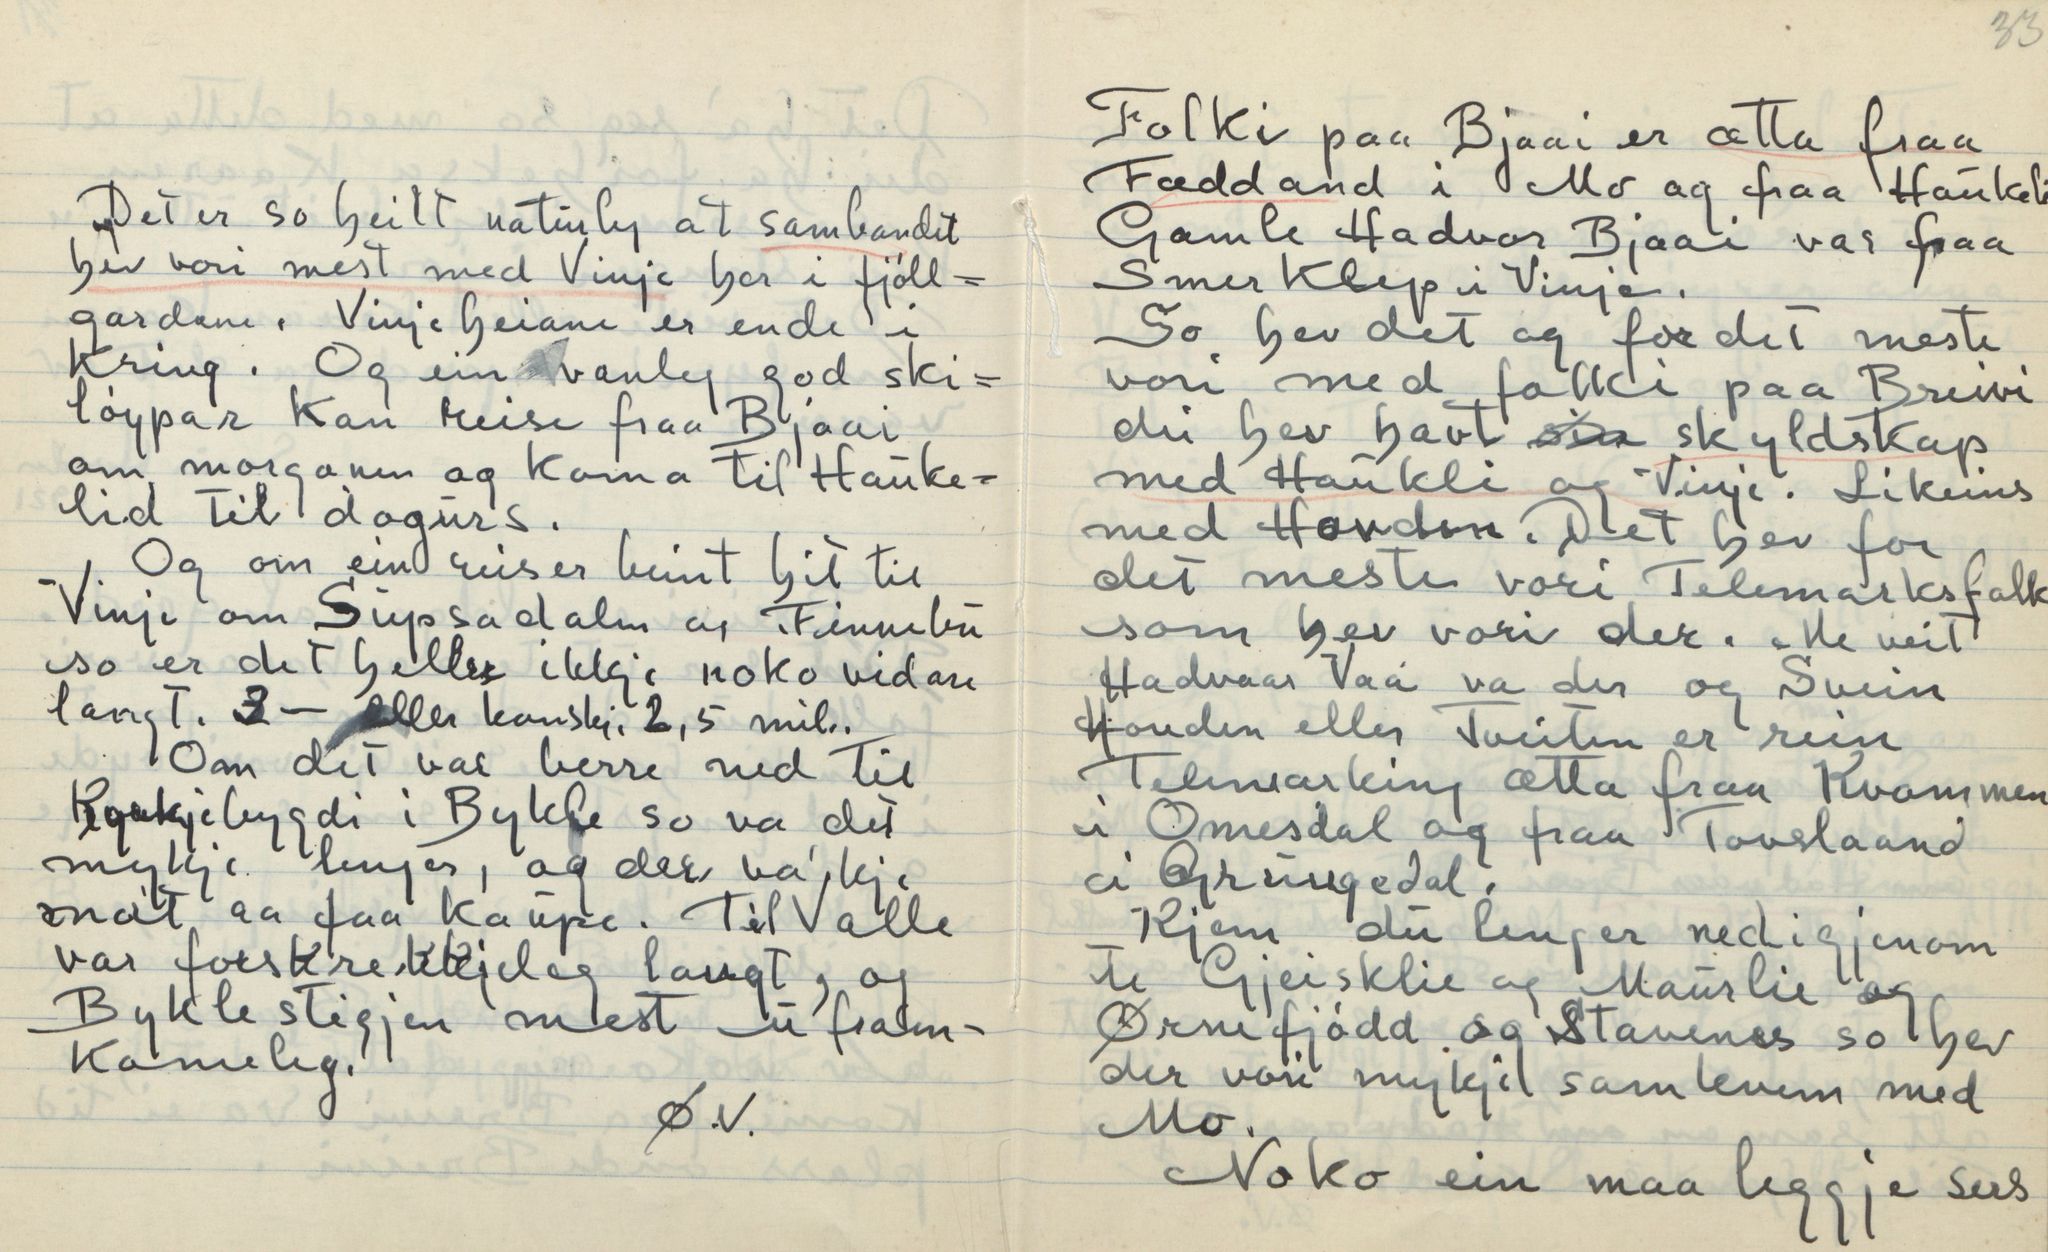 Det er so heilt naturleg at sambandet
hev vori mest med Vinje her i fjöll=
gardane. Vinjeheiane er ende i
kring. Og ein vanleg god ski=
löypar kan reise fraa Bjaai
om morganen og koma til Hauke=
lid til dogurs.
Og om ein reiser beint hit til
Vinje om Supsadalen og Finnebu
so er det heller ikkje noko vidare
langt. 3 — eller kanskje 2,5 mil.
Om det var berre ned til
Kyrkjebygdi i Bykle so va det
mykje lenger, og der va'kje
mat aa faa kaupe. Til Valle
var forskrekkjeleg langt, og
Byklestigjen mest ufram-
komeleg.
Ø.V.
33
Folki paa Bjaai er ætta fraa
Fæddand i Mo og fraa Haukeli
Gamle Hadvor Bjaai var fraa
Smerklep i Vinje.
So hev det og for det meste
vori med folki paa Breivi
dei hev havt skyldskap
med Haukli og Vinje. Likeins
med Hovden. Det hev for
det meste vori Telemarksfolk
som hev vori der. Me veit
Hadvaar Vaa va der og Svein
Hovden eller Tveiten er rein
Telemarking ætta fraa Kvammen
i Omesdal og fraa Tovslaand
i Grungedal.
Kjem du lenger ned igjenom
te Gjeisklie og Maurlie og
Ørnefjödd og Stavenes so hev
der vori mykjil samkvem med
Mo.
Noko ein maa leggje sers